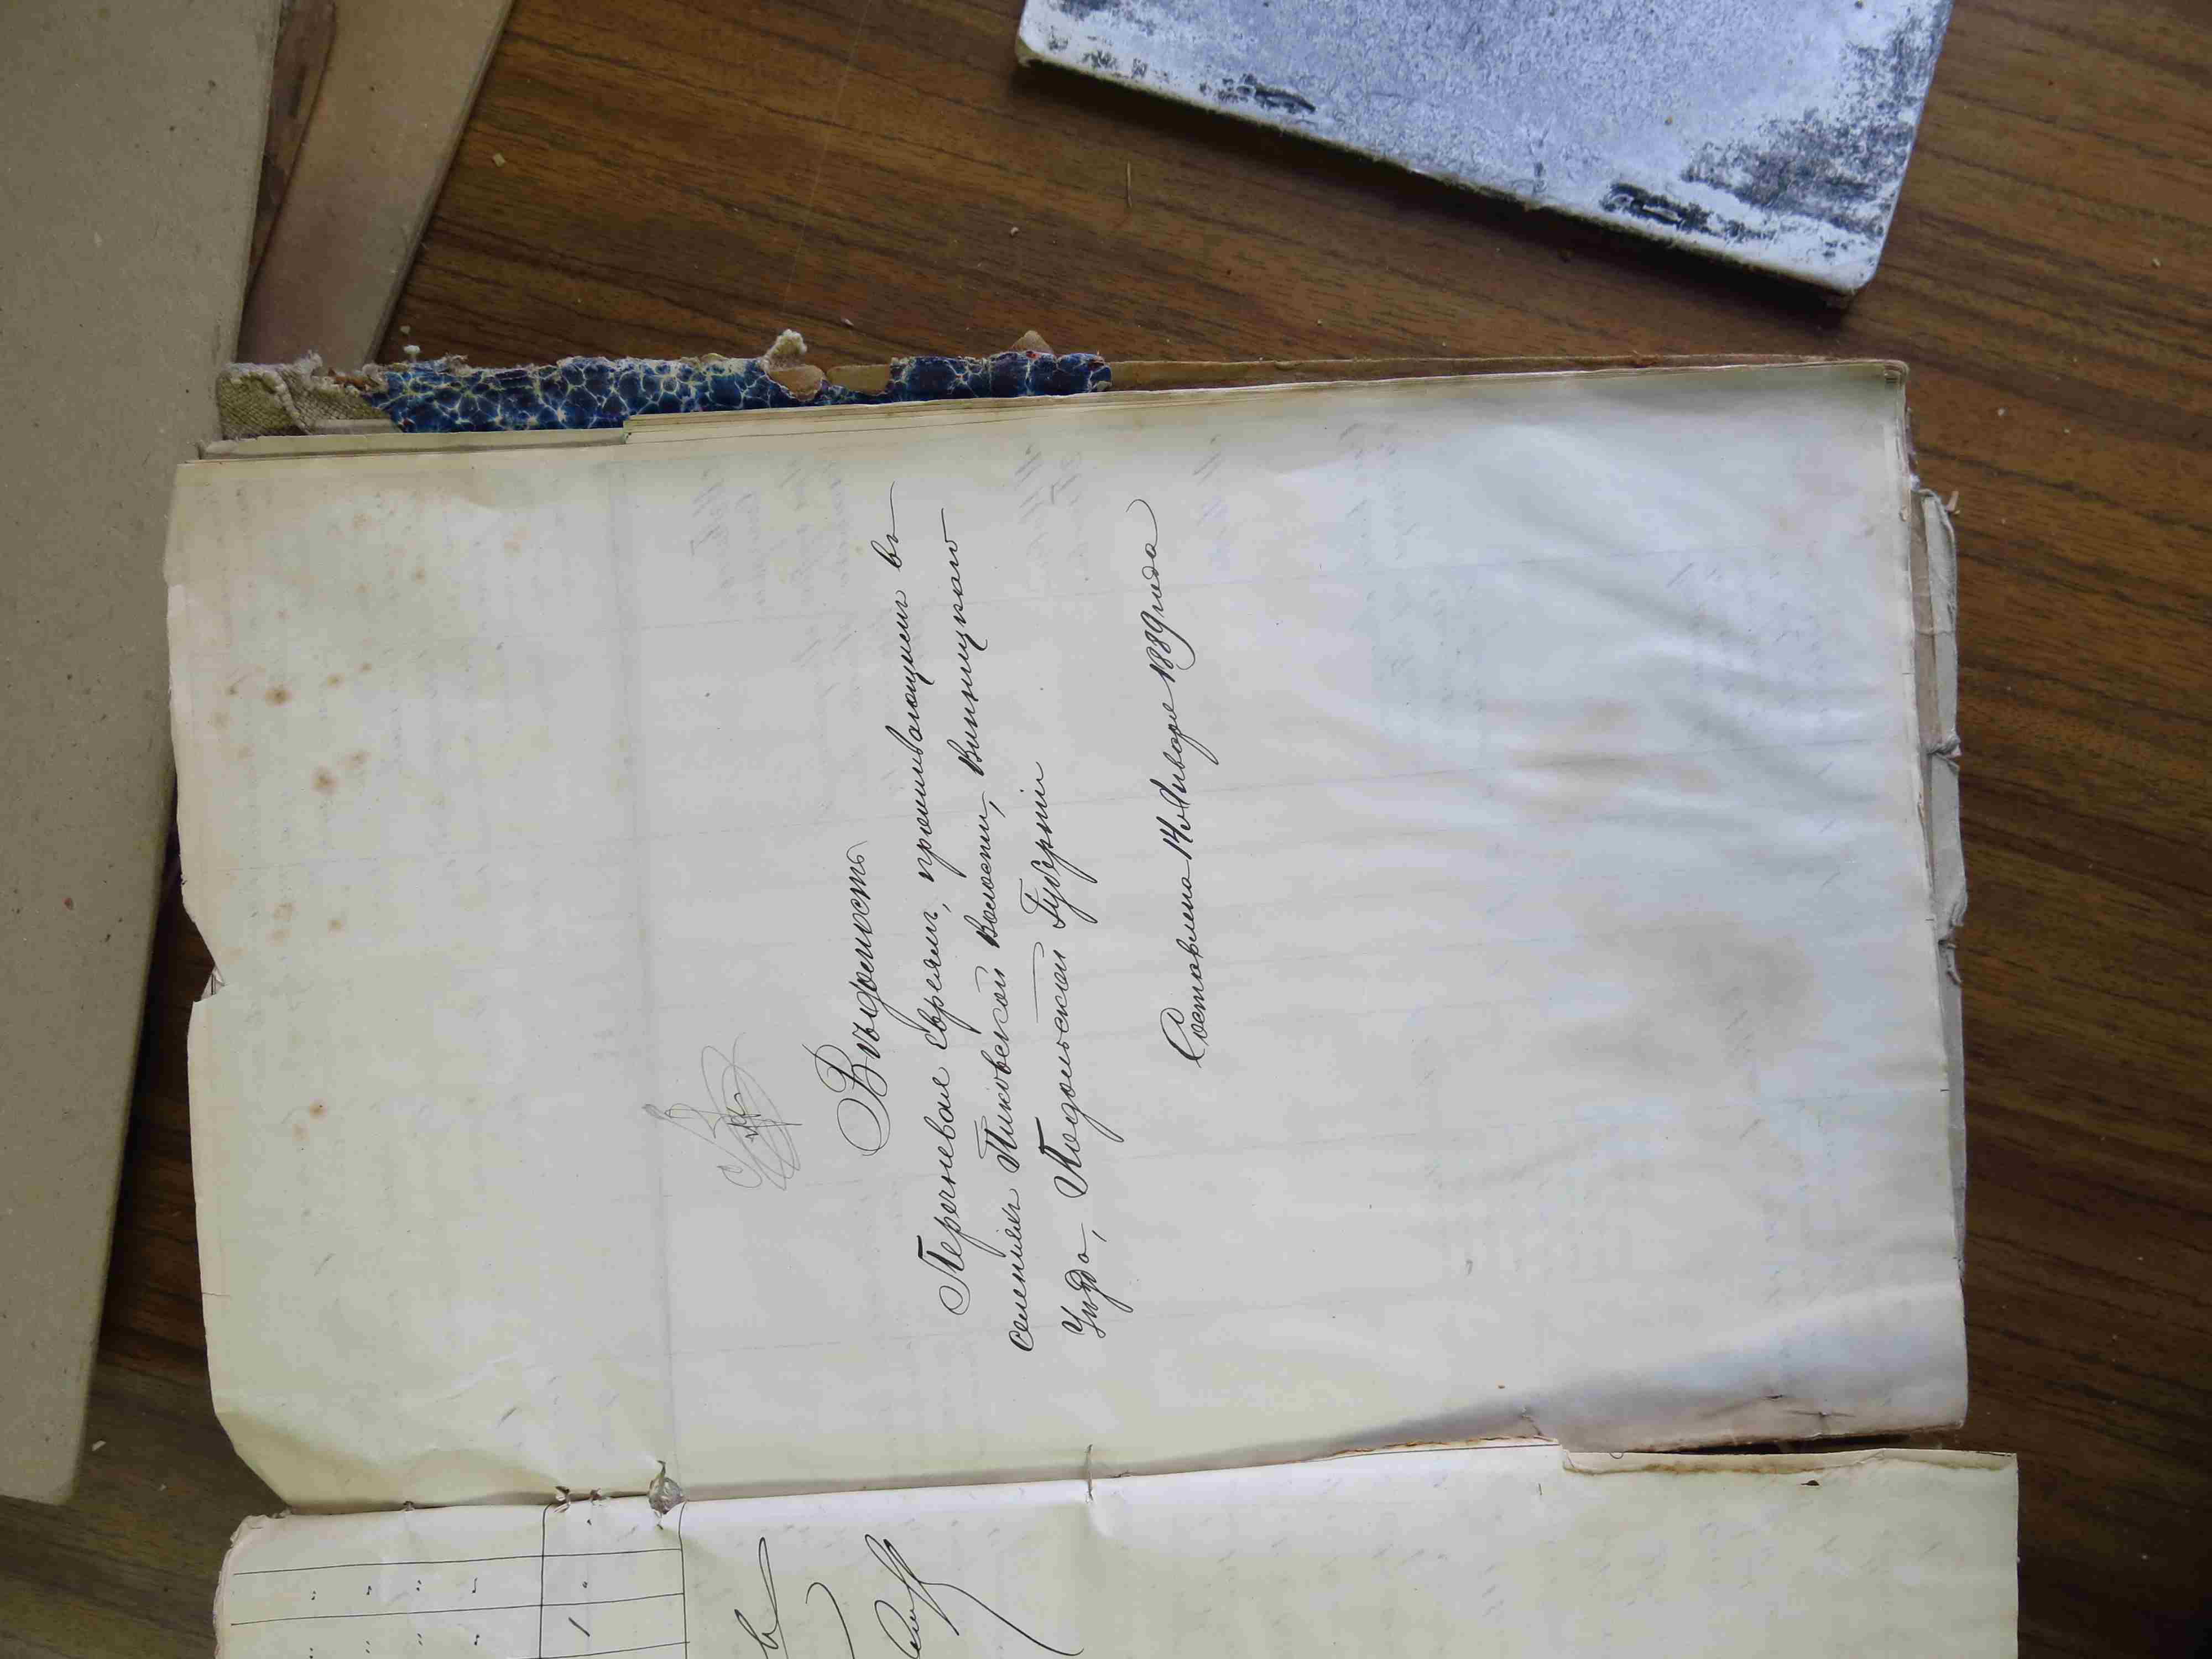 Вѣдомость
Перечневая евреямъ, проживающимъ въ
селенияхъ Пиковской Волости, Винницкого
Уѣзда, Подольской Губерніи
Составлена 14 Января 1889 года